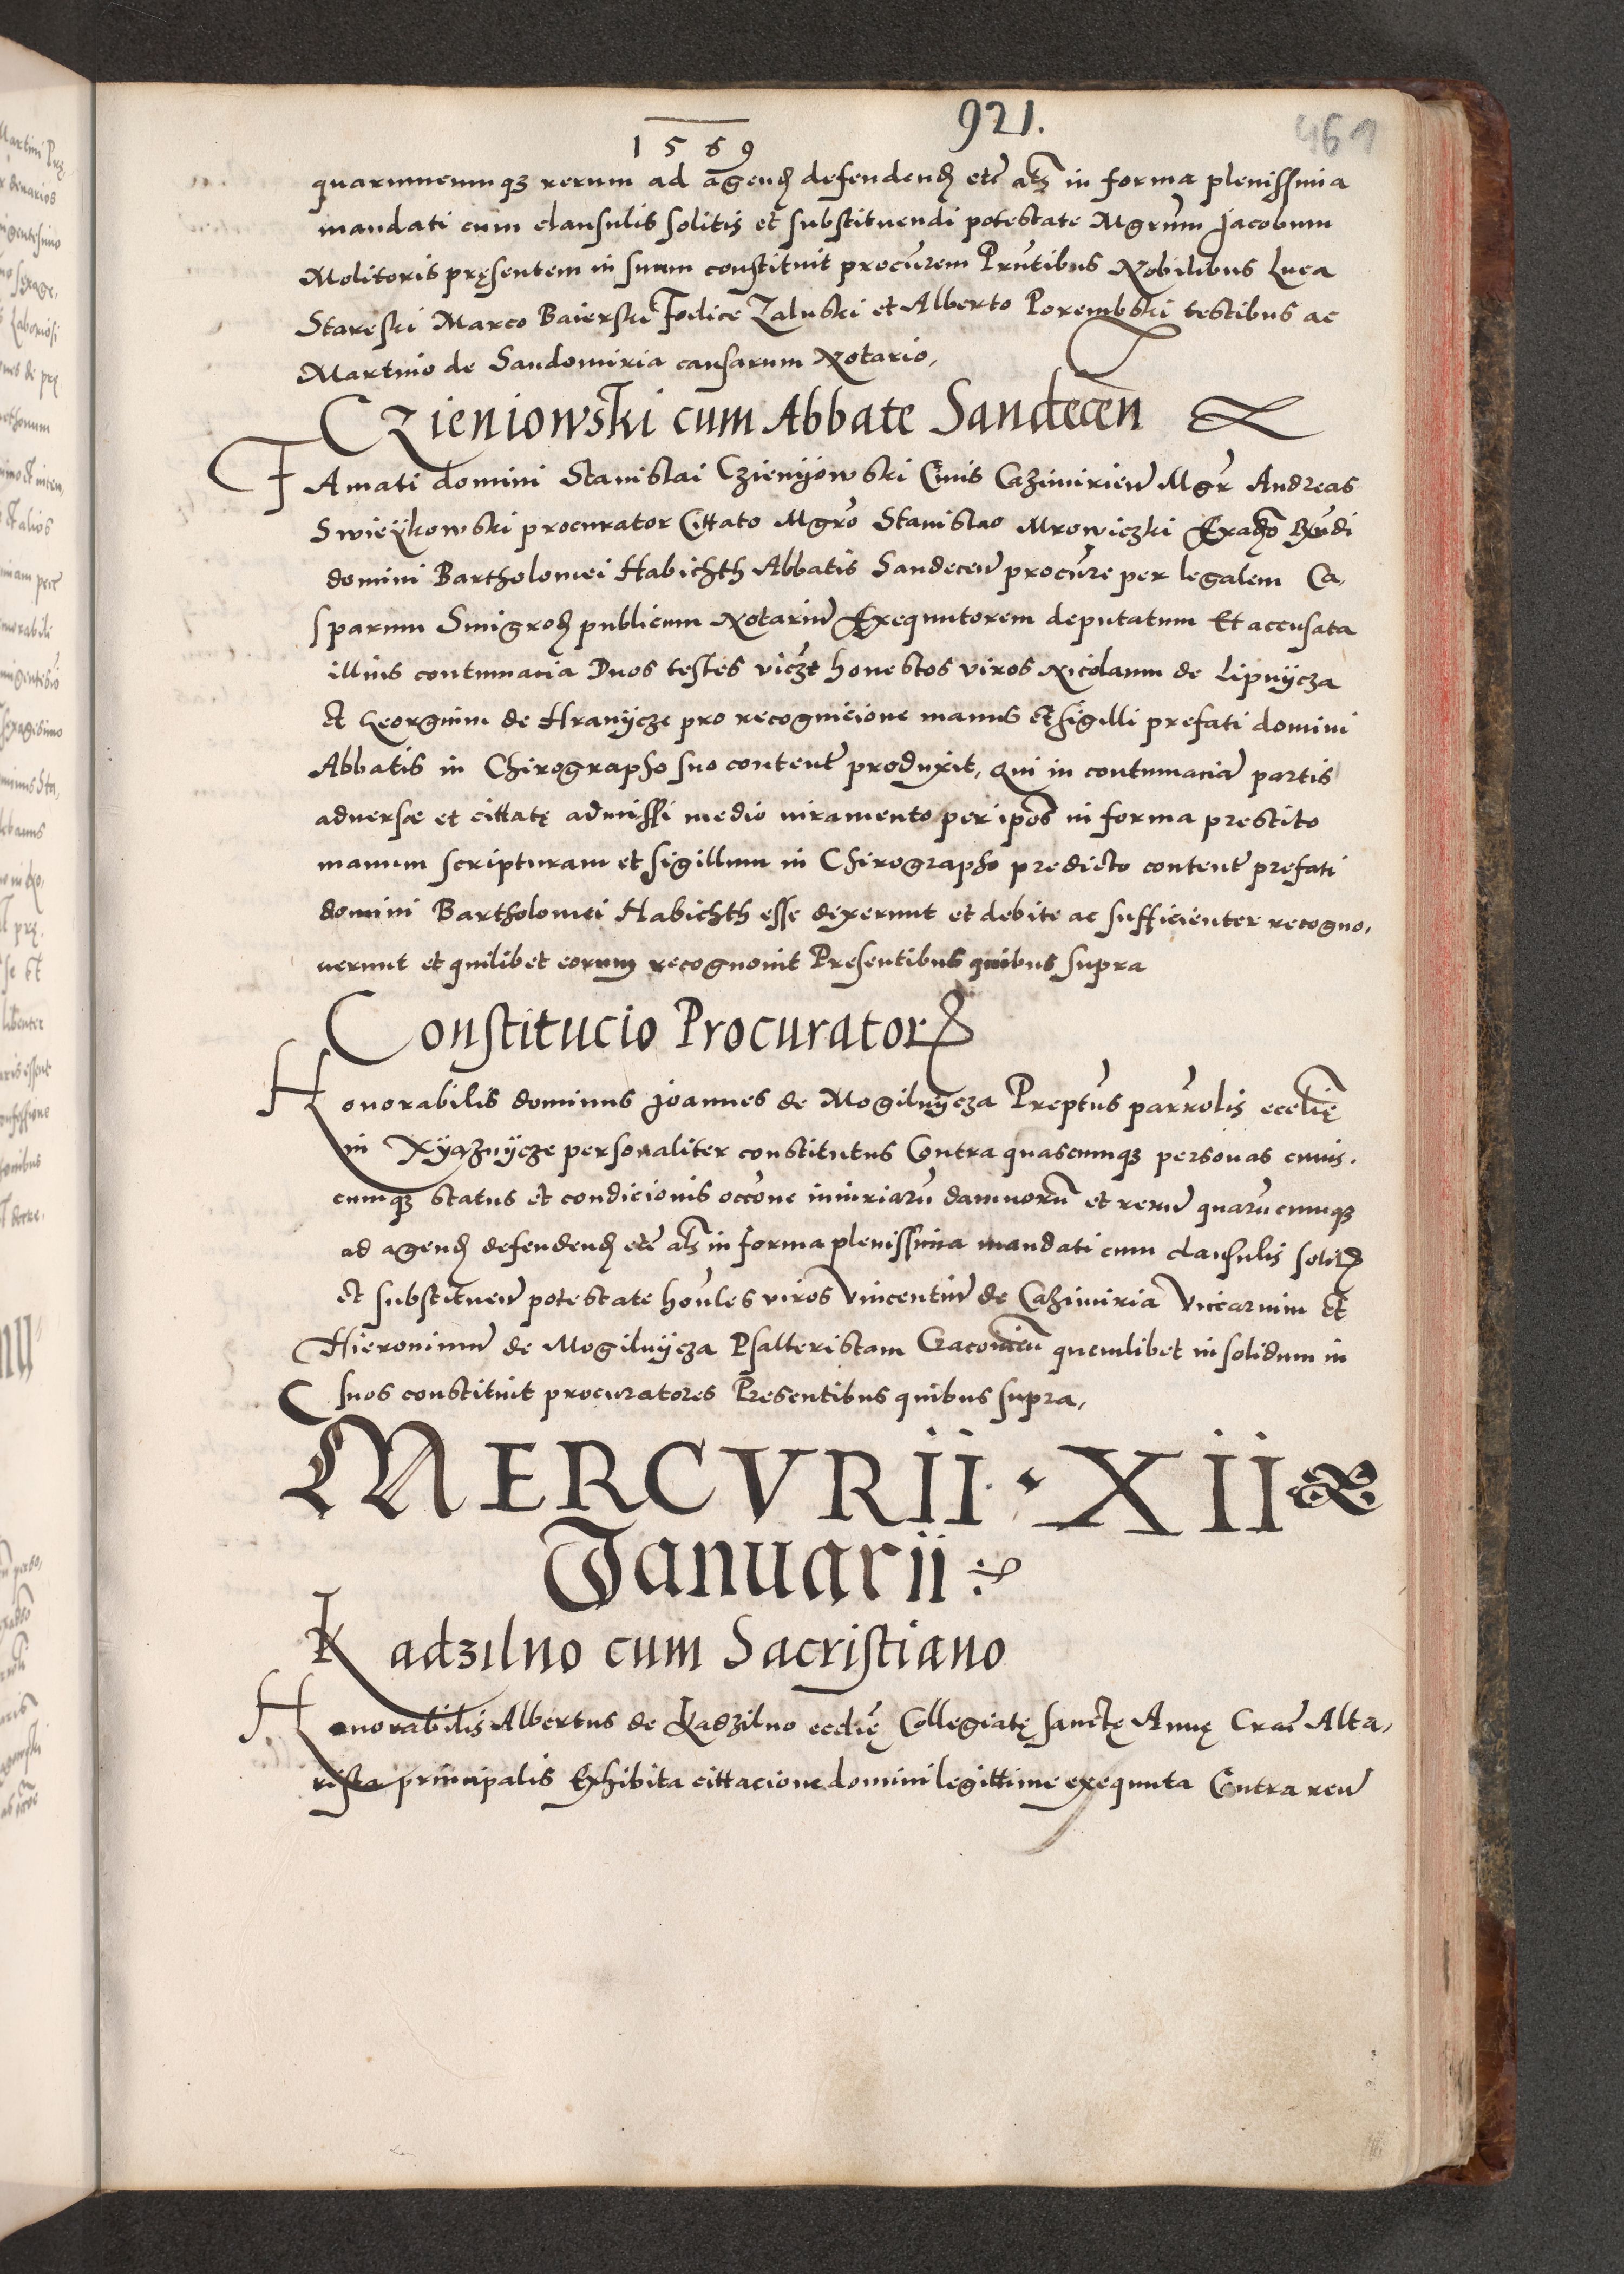 921.
461
1569
quarumcumqȝ rerum ad agend defendend etc als in forma plenissima
mandati cum clausulis solitis et substituendi potestate Mgrum Jacobum
Molitoris pręsentem in suum constituit procurem Pruntibus Nobilibus Luca
Stareski Marco Baierski Fodice Zaluski et Alberto Porembski testibus ac
Martino de Sandomiria causarum Notario,
CZieniowski cum Abbate Sandecen
FAmati domini Stanislai Czienijowski Civis Cazimirien Mgr Andreas
Swieÿkowski procurator Cittato Mgro Stanislao Mrowiczki
domini Bartholomei Habichth Abbatis Sandecen procure per legalem Ca,
sparum Smigrod publicum Notariu Exequutorem deputatum Et accusata
illius contumacia Duos testes viczt honestos viros Nicolaum de Lipnÿcza
et Georgium de Hranÿcze pro recognicione manus et sigilli prefati domini
Abbatis in Chirographo suo content produxit, Qui in contumacia partis
adversæ et cittatę admissi medio iuramento per ipos in forma prestito
manum scripturam et sigillum in Chirographo predicto content prefati
domini Bartholomei Habichth esse dixerunt et debite ac sufficienter recogno,
verunt et quilibet eorum recognovit Presentibus quibus supra
Constitucio Procurator
Honorabilis dominus Joannes de Mogilnÿcza Preptus parrolis ecclię
in Xÿąznÿcze personaliter constitutus Contra quascumqȝ personas cuius.
cumqȝ status et condicionis occone iniuriaru damnoru et reru quarucumqȝ
ad agend defendend etc als in forma plenissima mandati cum clausulis solit
et substituen potestate honles viros Vincentiu de Cazimiria Vicarium Et
Hieronimu de Mogilnÿcza Psalteristam Cracovien quemlibet in solidum in
suos constituit procuratores Presentibus quibus supra,
MERCVRII · XII
Januarii
Kadzilno cum Sacristiano
Honorabilis Albertus de Kadzilno ecclię Collegiatę sanctę Annę Crac Alta,
rista principalis Exhibita cittacione domini legittime exequuta Contra reu